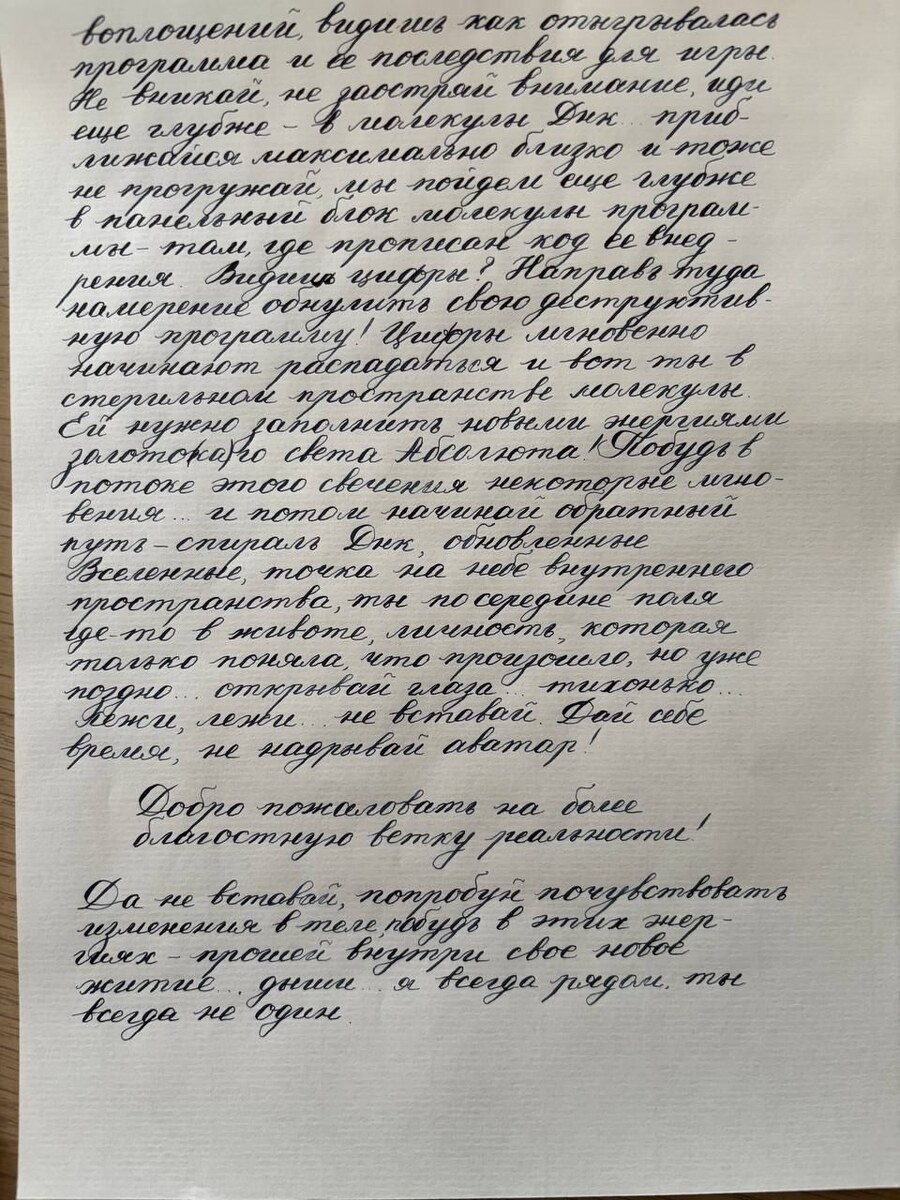 воплощений, видишь как отыгрывалась
программа и ее последствия для игры.
Не вникай, не заостряй внимание, иди
еще глубже – в молекулы Днк... приб-
лижайся максимально близко и тоже
не прогружай, мы пойдем еще глубже
в панельный блок молекулы програм-
мы – там, где прописан код ее внед-
рения. Видишь цифры? Направь туда
намерение обнулить свою деструктив-
ную программу! Цифры мгновенно
начинают распадаться и вот ты в
стерильном пространстве молекулы.
Ей нужно заполнить новыми энергиями
золото(ка)го света Абсолюта! Побудь в
потоке этого свечения некоторые мгно-
вения... и потом начинай обратный
путь – спираль Днк, обновленные
Вселенные, точка на небе внутреннего
пространства, ты посередине поля
где-то в животе, личность, которая
только поняла, что произошло, но уже
поздно... открывай глаза... тихонько...
Лежи, лежи... не вставай. Дай себе
время, не надрывай аватар!
Добро пожаловать на более
благостную ветку реальности!
Да не вставай, попробуй почувствовать
изменения в теле, побудь в этих энер-
гиях – прошей внутри свое новое
житие... дыши... я всегда рядом, ты
всегда не один.